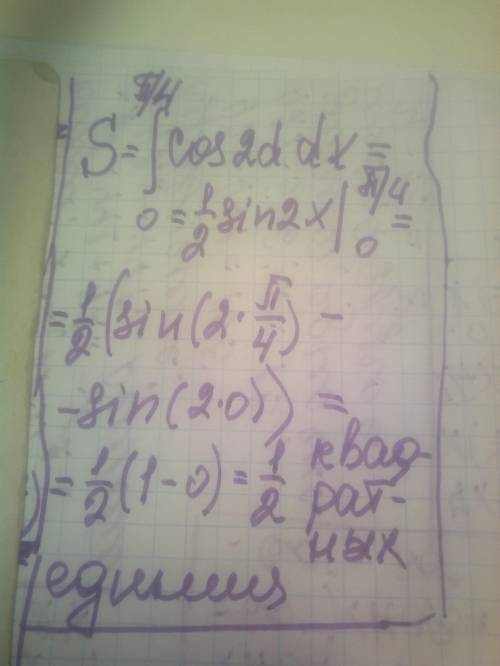 π/4
S = ∫ cos2d dx =
0 = 1/2 sin2x | π/4 0 =
= 1/2 (sin(2·π/4) -
- sin(2·0)) =
= 1/2 (1-0) = 1/2 квад-
рат-
ных
единиц